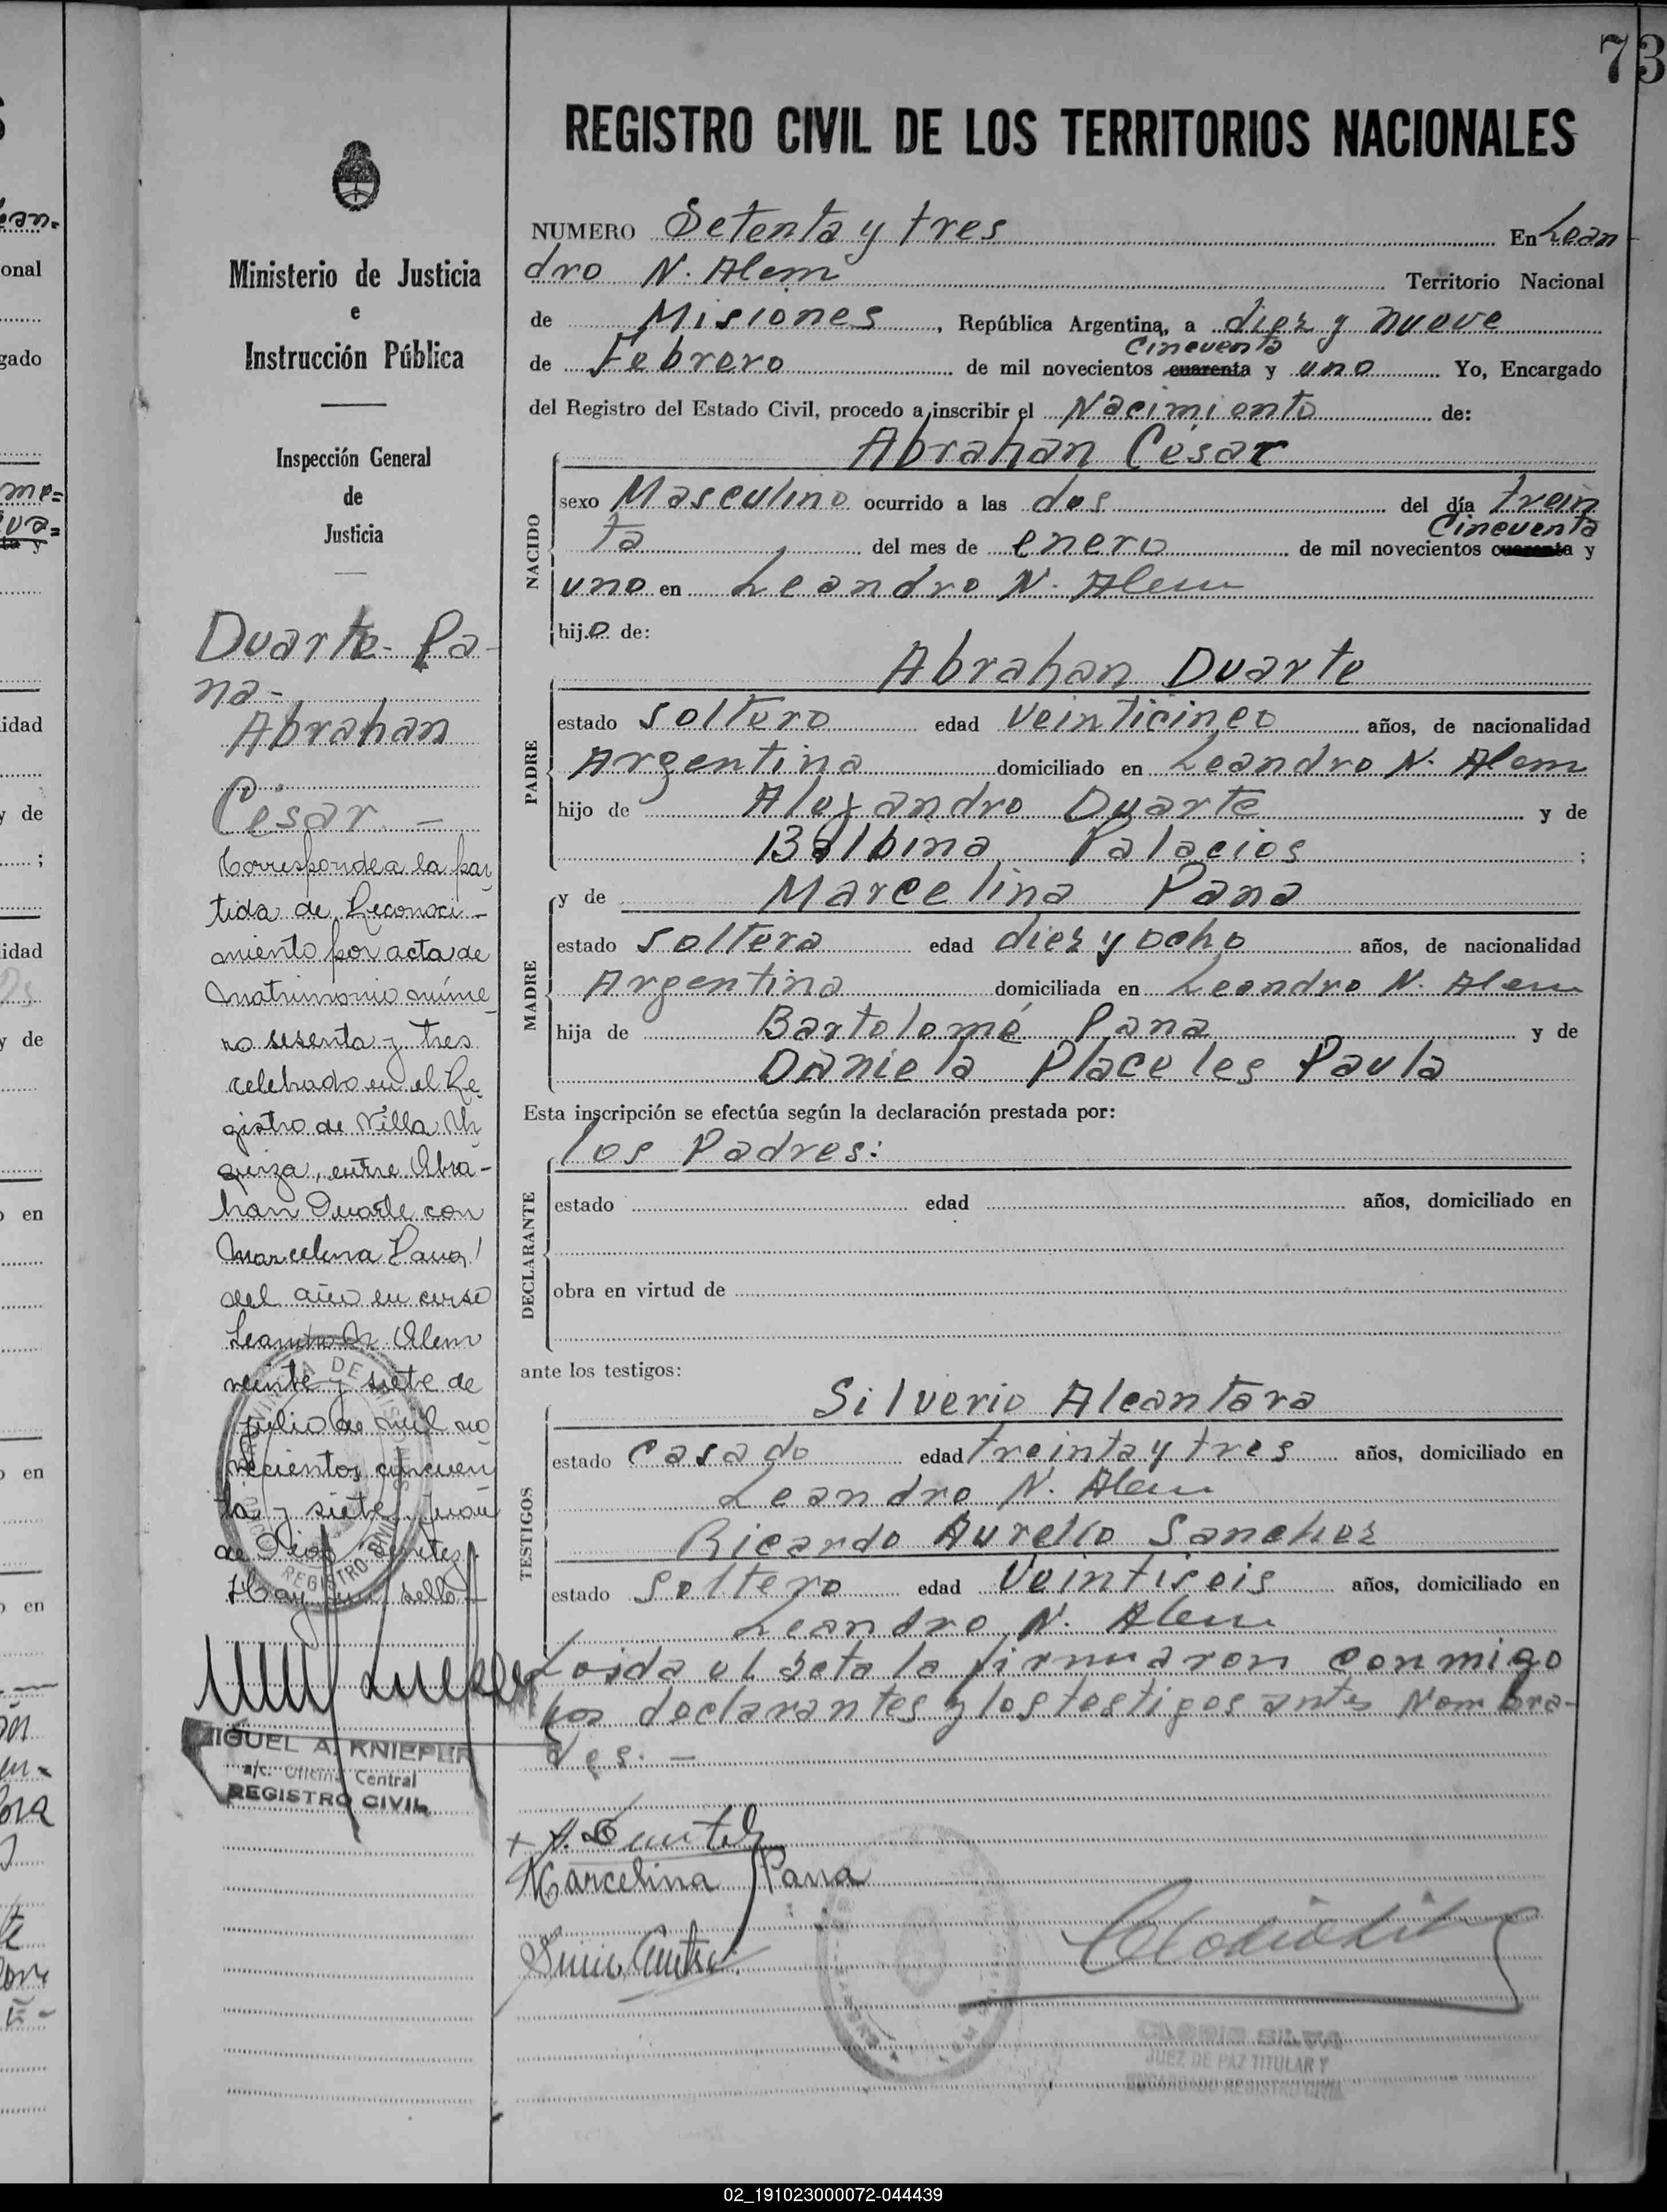 73
REGISTRO CIVIL DE LOS TERRITORIOS NACIONALES
NUMERO Setenta y tres En Lean
dro N. Alem Territorio Nacional
de Misiones, República Argentina, a diez y nueve
Cincuenta
de Febrero de mil novecientos cuarenta y uno Yo, Encargado
del Registro del Estado Civil, procedo a inscribir el Nacimiento de:
NACIDO
Abrahan César
sexo Masculino ocurrido a las dos del día trein
Cincuenta
ta del mes de enero de mil novecientos cuarenta y
uno en Leandro N. Alem
hijo de:
PADRE
Abrahan Duarte
estado soltero edad veinticinco años, de nacionalidad
Argentina domiciliado en Leandro N. Alem
hijo de Alejandro Duarte y de
Balbina Palacios ;
MADRE
y de Marcelina Pana
estado soltera edad diez y ocho años, de nacionalidad
Argentina domiciliada en Leandro N. Alem
hija de Bartolomé Pana y de
Daniela Placeles Paula
Esta inscripción se efectúa según la declaración prestada por:
DECLARANTE
los Padres:
estado edad años, domiciliado en
obra en virtud de
ante los testigos:
TESTIGOS
Silverio Alcantara
estado casado edad treinta y tres años, domiciliado en
Leandro N. Alem
Ricardo Aurelio Sanchez
estado soltero edad Veintiseis años, domiciliado en
Leandro N. Alem
Leida el acta la firmaron conmigo
los declarantes y los testigos antes Nombra-
dos. —
Marcelina Pana
CLODIO SILVA
JUEZ DE PAZ TITULAR Y
ENCARGADO REGISTRO CIVIL
Ministerio de Justicia
e
Instrucción Pública
Inspección General
de
Justicia
Duarte Pa-
na-
Abrahan
César. —
Corresponde a la par
tida de Reconoci-
miento por acta de
Matrimonio núme
ro sesenta y tres
celebrado en el Re
gistro de Villa Ur
quiza, entre Abra-
han Duarte con
Marcelina Pana,
del año en curso
Leandro N. Alem
veinte y siete de
julio de mil no
vecientos cincuen
ta y siete. Juan
de Dios
Hay un sello
MIGUEL A. KNIEPUR
a/c. Oficina Central
REGISTRO CIVIL
02_191023000072-044439